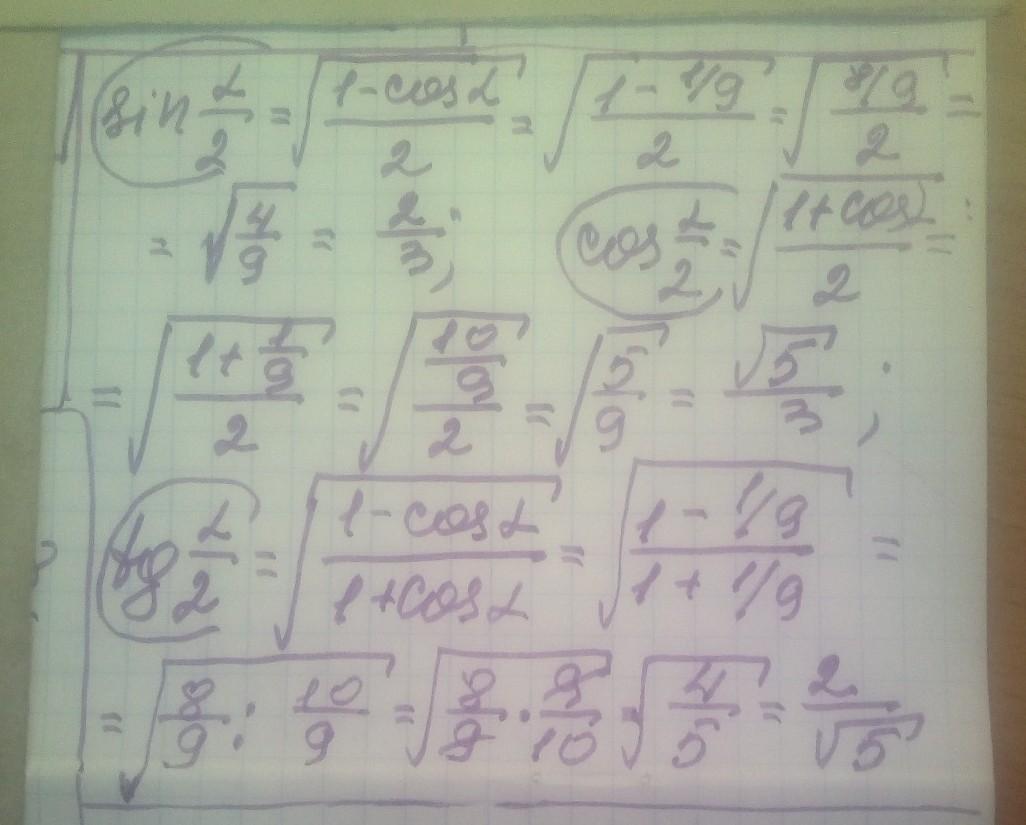 sin α/2 = √((1-cosα)/2) = √((1 - 1/9)/2) = √((8/9)/2) =
= √(4/9) = 2/3; cos α/2 = √((1+cosα)/2) =
= √((1 + 1/9)/2) = √((10/9)/2) = √(5/9) = √5/3;
tg α/2 = √((1-cosα)/(1+cosα)) = √((1 - 1/9)/(1 + 1/9)) =
= √(8/9 : 10/9) = √(8/9 · 9/10) = √(4/5) = 2/√5